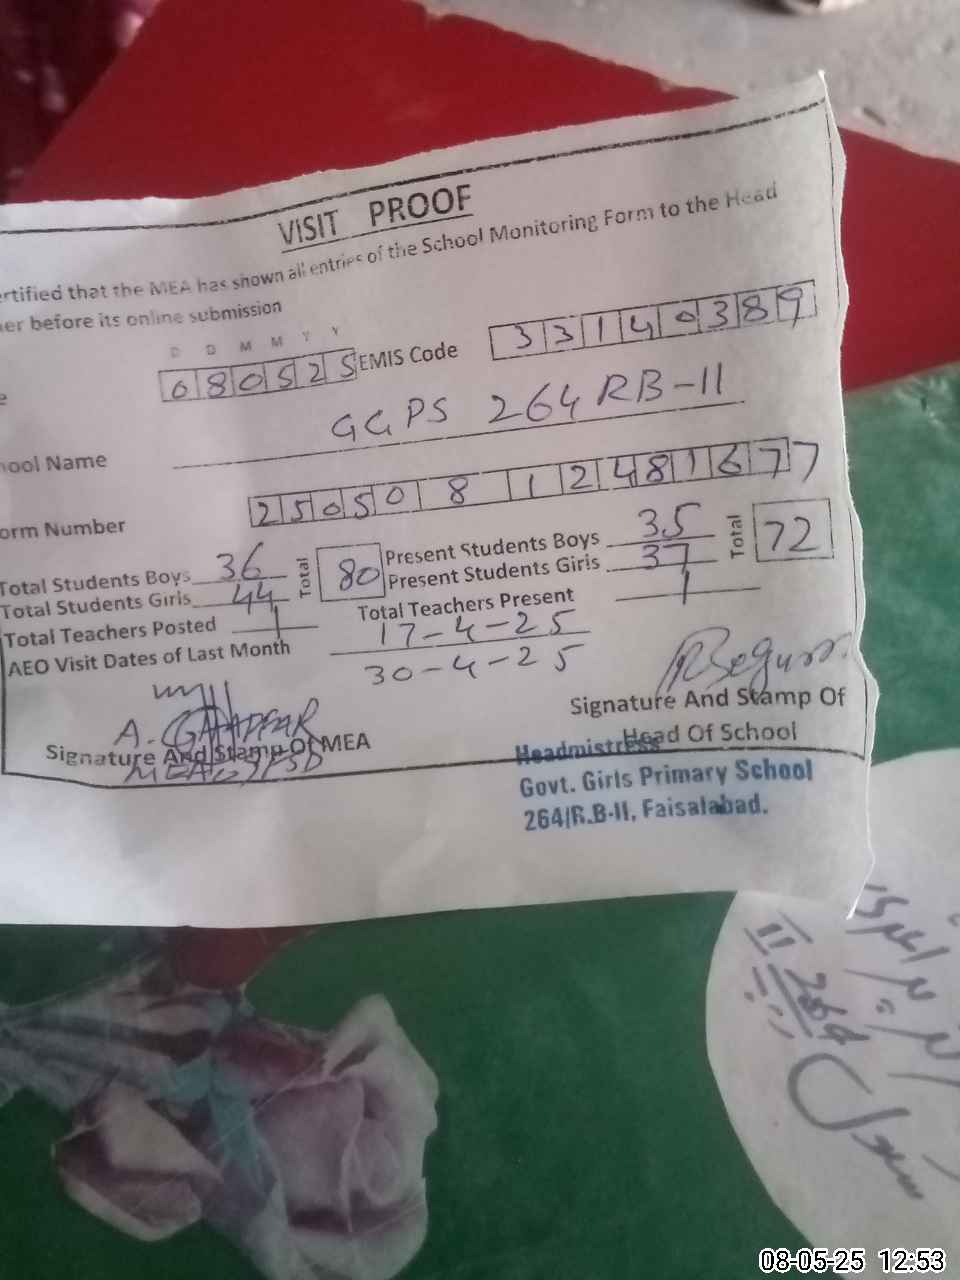 VISIT PROOF
ertified that the MEA has shown all entries of the School Monitoring Form to the Head
er before its online submission
D D M M Y Y
e 080525 EMIS Code 33140389
hool Name GGPS 264 RB-II
orm Number 25050812481677
Total Students Boys 36 Total 80 Present Students Boys 35 Total 72
Total Students Girls 44 Present Students Girls 37
Total Teachers Posted 1 Total Teachers Present 1
AEO Visit Dates of Last Month 17-4-25
30-4-25
RBegum
A. GHAFFAR
Signature And Stamp Of MEA
Signature And Stamp Of
Head Of School
Headmistress
Govt. Girls Primary School
264/R.B-II, Faisalabad.
264 II
سکول
08-05-25 12:53